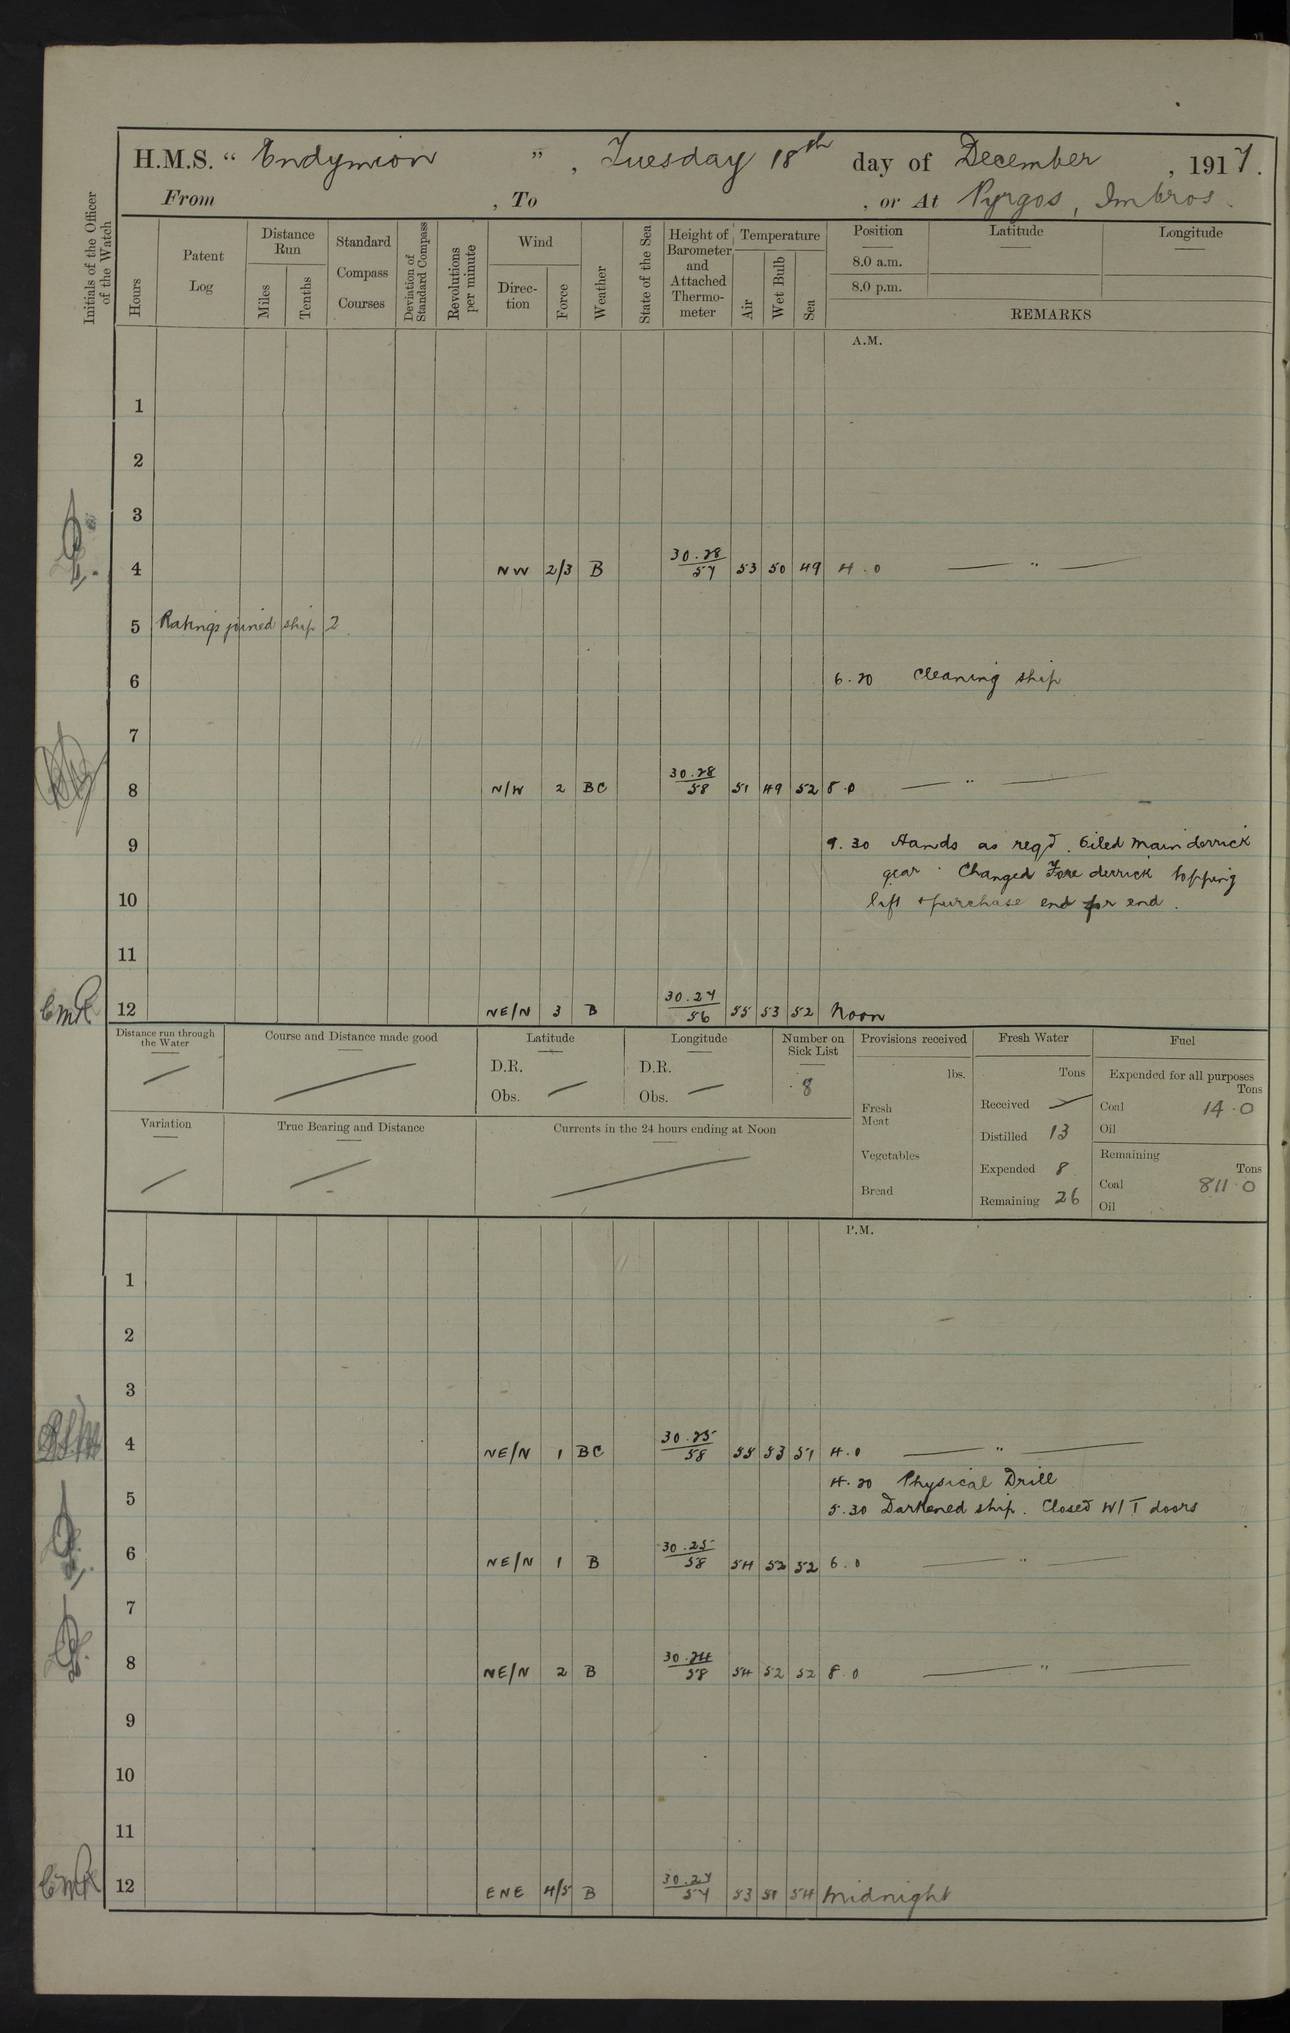 H.M.S. “ Endymion ” , Tuesday 18th day of December , 1917.
From , To , or At Pyrgos, Imbros.
Initials of the Officer of the Watch
Hours
Patent Log
Distance Run
Miles
Tenths
Standard Compass Courses
Deviation of Standard Compass
Revolutions per minute
Wind
Direc-tion
Force
Weather
State of the Sea
Height of Barometer and Attached Thermo-meter
Temperature
Air
Wet Bulb
Sea
Position
8.0 a.m.
8.0 p.m.
Latitude
Longitude
REMARKS
A.M.
1
2
3
4 NW 2/3 B 30.28/57 53 50 49 4.0 — " —
5 Ratings joined ship 2.
6 6.20 Cleaning ship
7
8 N/W 2 BC 30.28/58 51 49 52 8.0 — " —
9 9.30 Hands as reqd. Oiled main derrick
gear. Changed Fore derrick topping
10 lift + purchase end for end.
11
CMR 12 NE/N 3 B 30.27/56 55 53 52 Noon
Distance run through the Water
Course and Distance made good
Latitude
D.R.
Obs.
Longitude
D.R.
Obs.
Number on Sick List
8
Provisions received
lbs.
Fresh Meat
Vegetables
Bread
Fresh Water
Tons
Received
Distilled 13
Expended 8
Remaining 26
Fuel
Expended for all purposes
Tons
Coal 14.0
Oil
Remaining
Tons
Coal 811.0
Oil
Variation
True Bearing and Distance
Currents in the 24 hours ending at Noon
P.M.
1
2
3
4 NE/N 1 BC 30.25/58 55 53 51 4.0 — " —
4.20 Physical Drill
5 5.30 Darkened ship. Closed W/T doors
6 NE/N 1 B 30.25/58 54 52 52 6.0 — " —
7
8 NE/N 2 B 30.24/58 54 52 52 8.0 — " —
9
10
11
CMR 12 ENE 4/5 B 30.27/57 53 51 54 Midnight